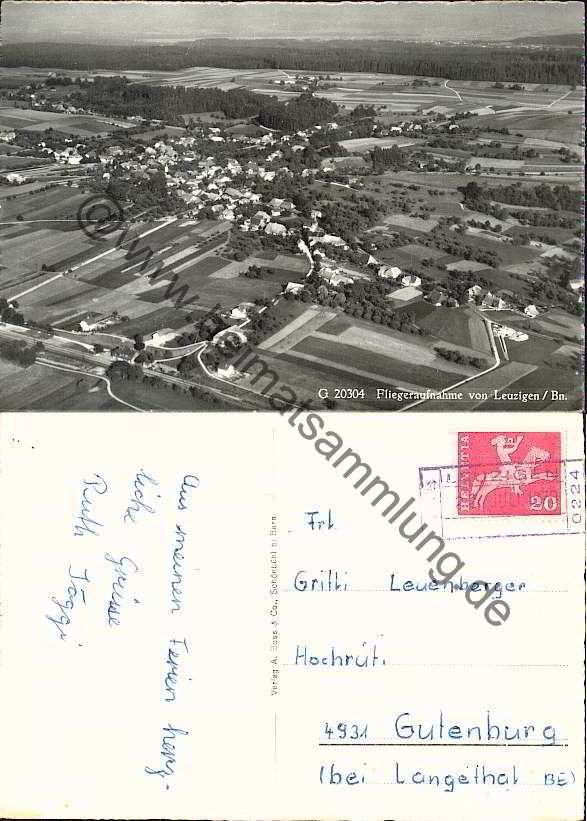 G 20304 Fliegeraufnahme von Leuzigen / Bn.
© www.heimatsammlung.de
Aus meinen Ferien herz-
liche Grüsse
Ruth Jäggi
Verlag A. Boss & Co., Schönbühl b/Bern
HELVETIA
20
LEUZIGEN
0224
Frl.
Gritli Leuenberger
Hochrüti
4931 Gutenburg
(bei Langethal BE)